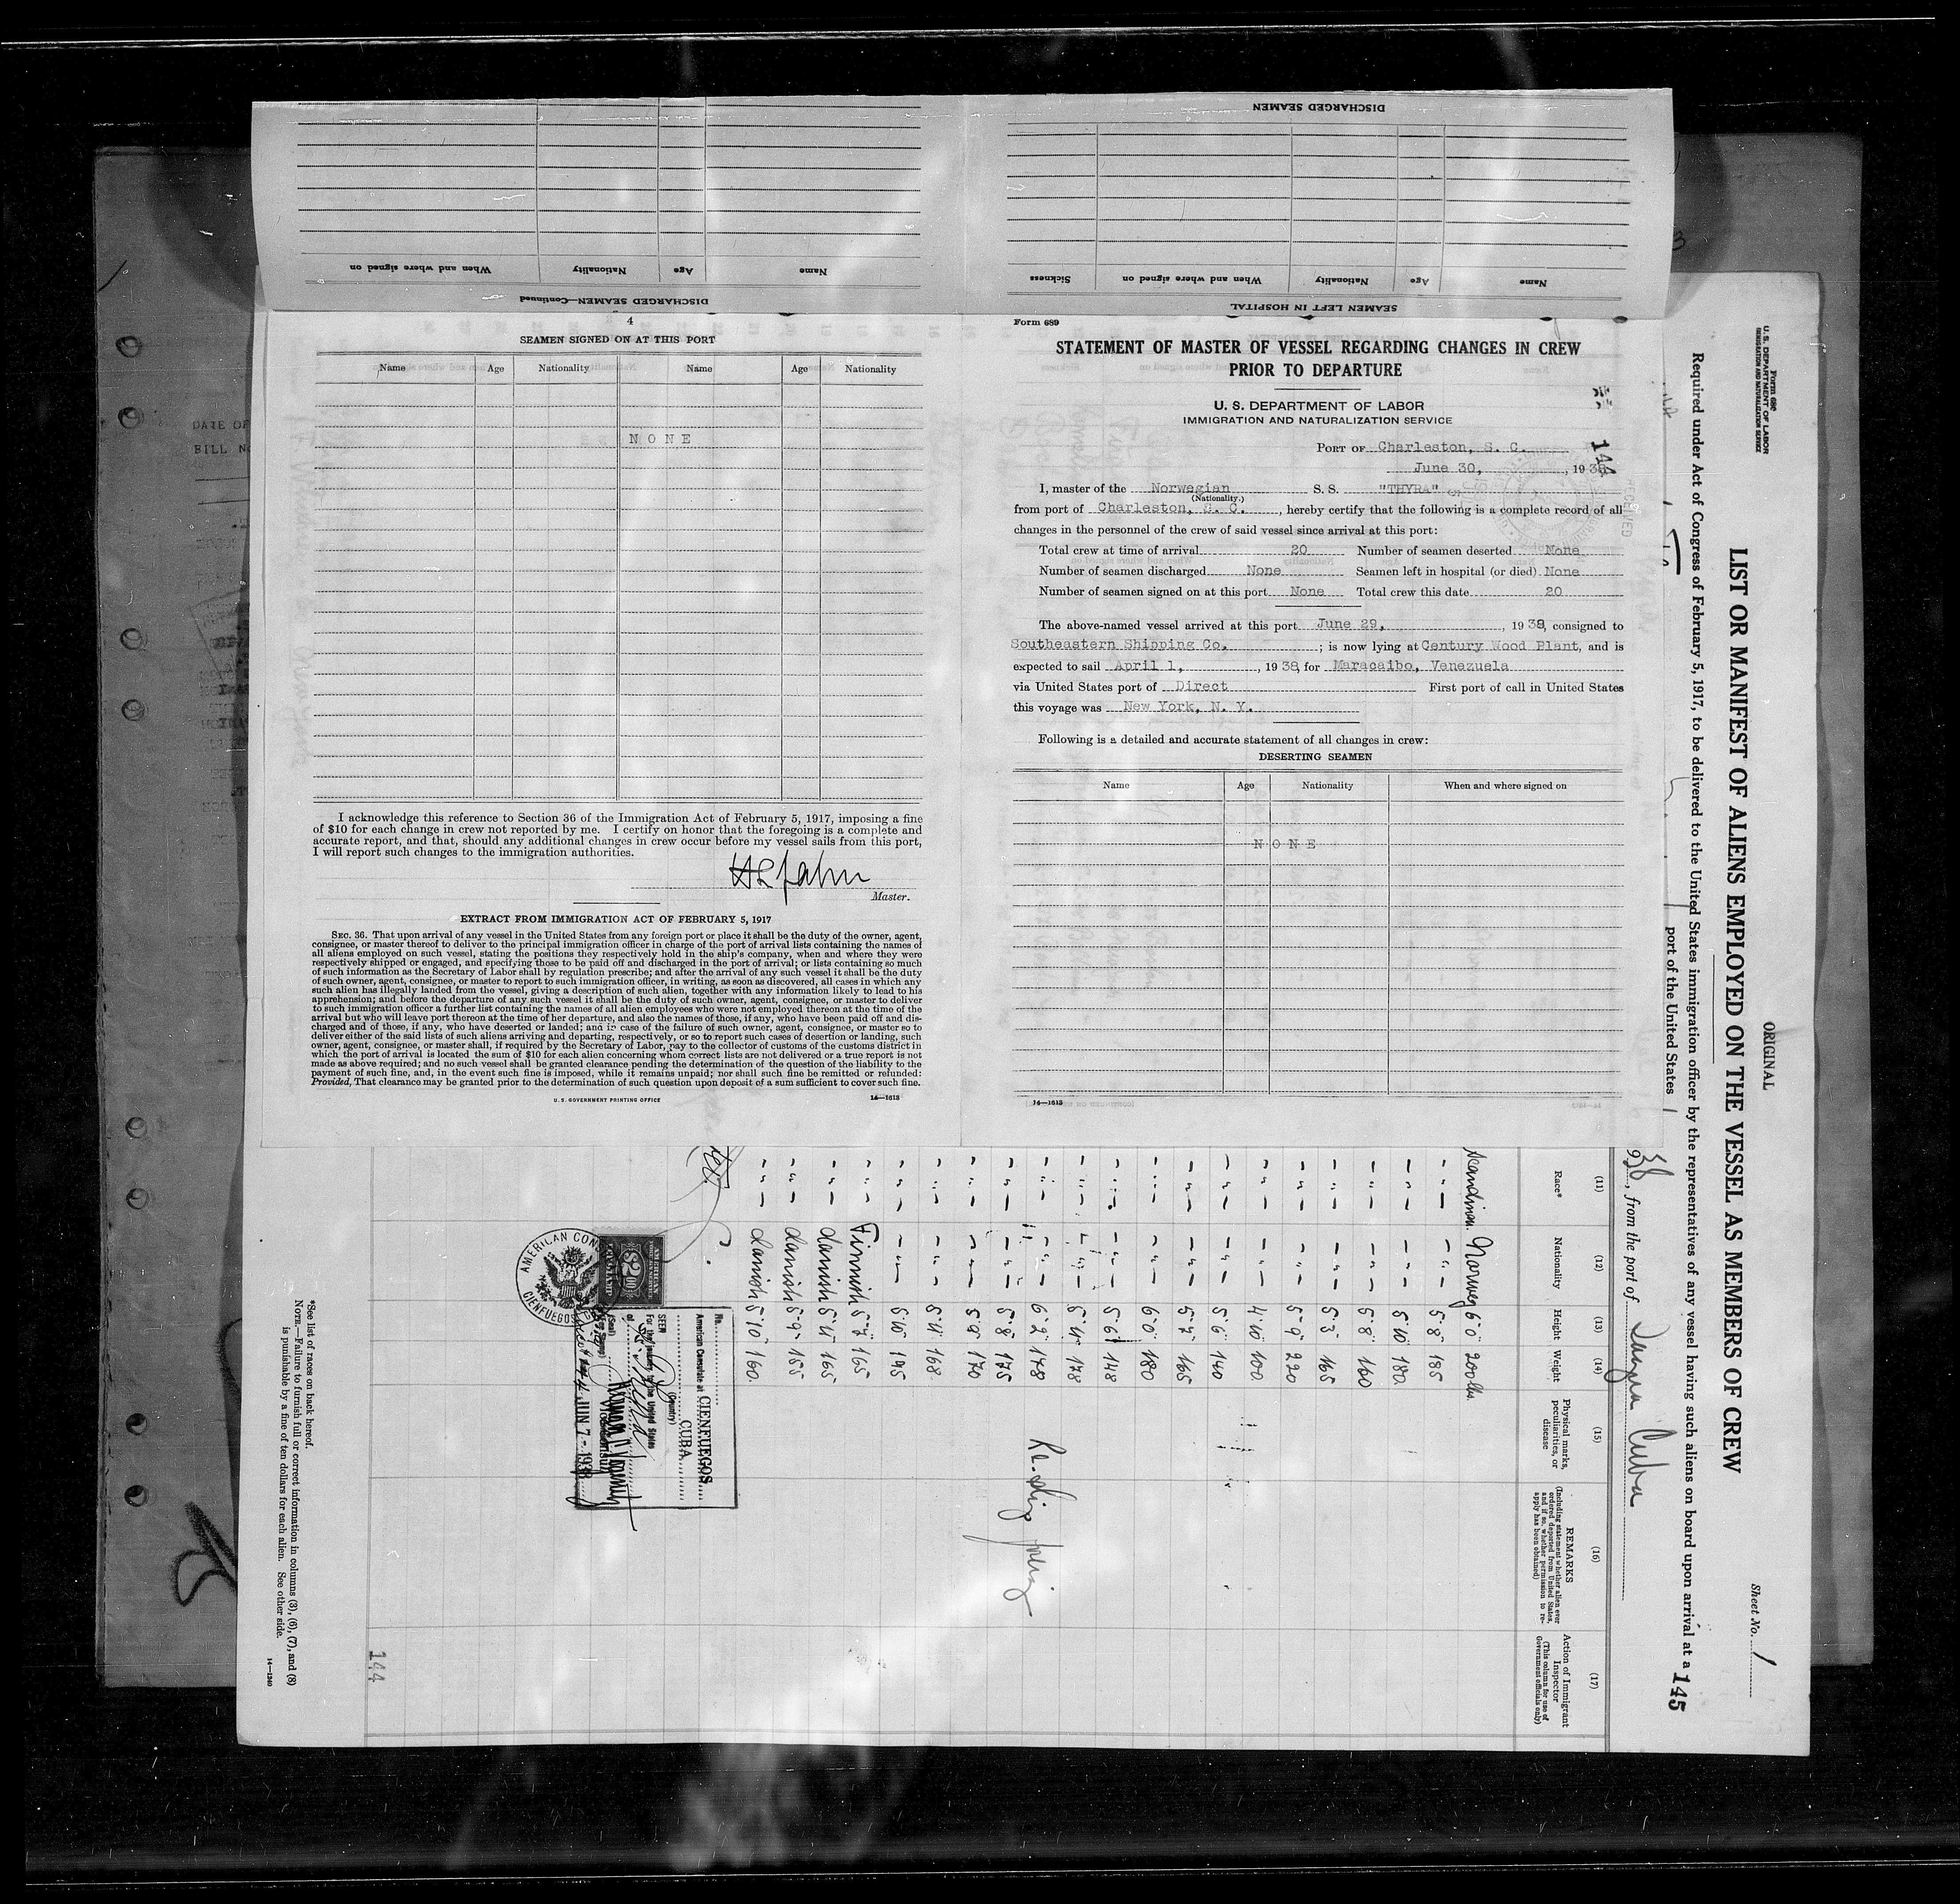 DISCHARGED SEAMEN
Name Age Nationality When and where signed on
DISCHARGED SEAMEN—Continued
Name Age Nationality When and where signed on Sickness
SEAMEN LEFT IN HOSPITAL
4
SEAMEN SIGNED ON AT THIS PORT
Name Age Nationality Name Age Nationality
NONE
I acknowledge this reference to Section 36 of the Immigration Act of February 5, 1917, imposing a fine
of $10 for each change in crew not reported by me. I certify on honor that the foregoing is a complete and
accurate report, and that, should any additional changes in crew occur before my vessel sails from this port,
I will report such changes to the immigration authorities.
Master.
EXTRACT FROM IMMIGRATION ACT OF FEBRUARY 5, 1917
SEC. 36. That upon arrival of any vessel in the United States from any foreign port or place it shall be the duty of the owner, agent,
consignee, or master thereof to deliver to the principal immigration officer in charge of the port of arrival lists containing the names of
all aliens employed on such vessel, stating the positions they respectively hold in the ship's company, when and where they were
respectively shipped or engaged, and specifying those to be paid off and discharged in the port of arrival; or lists containing so much
of such information as the Secretary of Labor shall by regulation prescribe; and after the arrival of any such vessel it shall be the duty
of such owner, agent, consignee, or master to report to such immigration officer, in writing, as soon as discovered, all cases in which any
such alien has illegally landed from the vessel, giving a description of such alien, together with any information likely to lead to his
apprehension; and before the departure of any such vessel it shall be the duty of such owner, agent, consignee, or master to deliver
to such immigration officer a further list containing the names of all alien employees who were not employed thereon at the time of the
arrival but who will leave port thereon at the time of her departure, and also the names of those, if any, who have been paid off and dis-
charged and of those, if any, who have deserted or landed; and in case of the failure of such owner, agent, consignee, or master so to
deliver either of the said lists of such aliens arriving and departing, respectively, or so to report such cases of desertion or landing, such
owner, agent, consignee, or master shall, if required by the Secretary of Labor, pay to the collector of customs of the customs district in
which the port of arrival is located the sum of $10 for each alien concerning whom correct lists are not delivered or a true report is not
made as above required; and no such vessel shall be granted clearance pending the determination of the question of the liability to the
payment of such fine, and, in the event such fine is imposed, while it remains unpaid; nor shall such fine be remitted or refunded:
Provided, That clearance may be granted prior to the determination of such question upon deposit of a sum sufficient to cover such fine.
U. S. GOVERNMENT PRINTING OFFICE 14—1613
Form 689
STATEMENT OF MASTER OF VESSEL REGARDING CHANGES IN CREW
PRIOR TO DEPARTURE
U. S. DEPARTMENT OF LABOR
IMMIGRATION AND NATURALIZATION SERVICE
144
PORT OF Charleston, S. C.
June 30, , 1938
I, master of the Norwegian S. S. "THYRA"
(Nationality.)
from port of Charleston, S. C. , hereby certify that the following is a complete record of all
changes in the personnel of the crew of said vessel since arrival at this port:
Total crew at time of arrival 20 Number of seamen deserted None
Number of seamen discharged None Seamen left in hospital (or died) None
Number of seamen signed on at this port None Total crew this date 20
The above-named vessel arrived at this port June 29, , 1938, consigned to
Southeastern Shipping Co. ; is now lying at Century Wood Plant, and is
expected to sail April 1, , 1938, for Maracaibo, Venezuela
via United States port of Direct First port of call in United States
this voyage was New York, N. Y.
Following is a detailed and accurate statement of all changes in crew:
DESERTING SEAMEN
Name Age Nationality When and where signed on
NONE
14—1613
Form 680
U. S. DEPARTMENT OF LABOR
IMMIGRATION AND NATURALIZATION SERVICE
ORIGINAL
Sheet No. 1
LIST OR MANIFEST OF ALIENS EMPLOYED ON THE VESSEL AS MEMBERS OF CREW
Required under Act of Congress of February 5, 1917, to be delivered to the United States immigration officer by the representatives of any vessel having such aliens on board upon arrival at a
port of the United States
145
938, from the port of Sagua Cuba
(11) (12) (13) (14) (15) (16) (17)
Race* Nationality Height Weight Physical marks, peculiarities, or disease
REMARKS
(Including statement whether alien ever ordered deported from United States, and if so, whether permission to re-apply has been obtained)
Action of Immigrant Inspector
(This column for use of Government officials only)
Scandinav. Norweg 6-0 200 lbs.
" " 5-8 185
" " 5-10 180
" " 5-8 160
" " 5-3 165
" " 5-9 220
" " 4-10 100
" " 5-6 140
" " 5-7 165
" " 6-0 180
" " 5-6 148
" " 5-11 178
" " 6-2 178
" " 5-8 175
" " 5-9 170
" " 5-11 168
" " 5-10 145
" Finnish 5-7 165
" Danish 5-11 165
" Danish 5-9 155
" Danish 5-10 160
No.
American Consulate at CIENFUEGOS
CUBA
(Country)
SEEN
For the journey to the United States
of
Vice Consul
(Seal)
JUN 7 - 1938
AMERICAN CONS
CIENFUEGOS
AMERICAN
$2.00
144
*See list of races on back hereof.
NOTE.—Failure to furnish full or correct information in columns (3), (6), (7), and (8)
is punishable by a fine of ten dollars for each alien. See other side.
14—1240
DATE OF
BILL NO